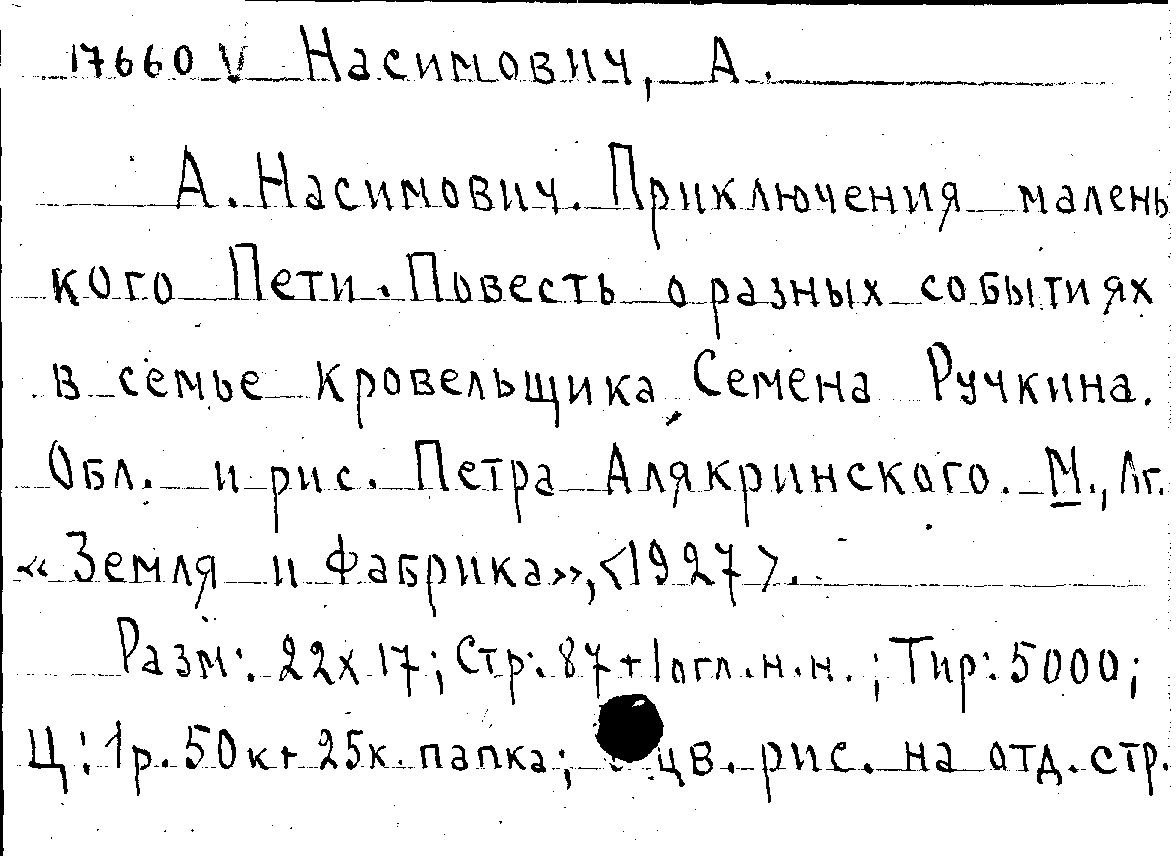 17660 V Насимович, А.
А. Насимович. Приключения малень
кого Пети. Повесть о разных событиях
в семье кровельщика Семена Ручкина.
Обл. и рис. Петра Алякринского. М., Лг.
«Земля и Фабрика», <1927>.
Разм: 22х17; Стр: 87+1 огл. н. н.; Тир: 5000;
Ц: 1р. 50к + 25к. папка; цв. рис. на отд. стр.